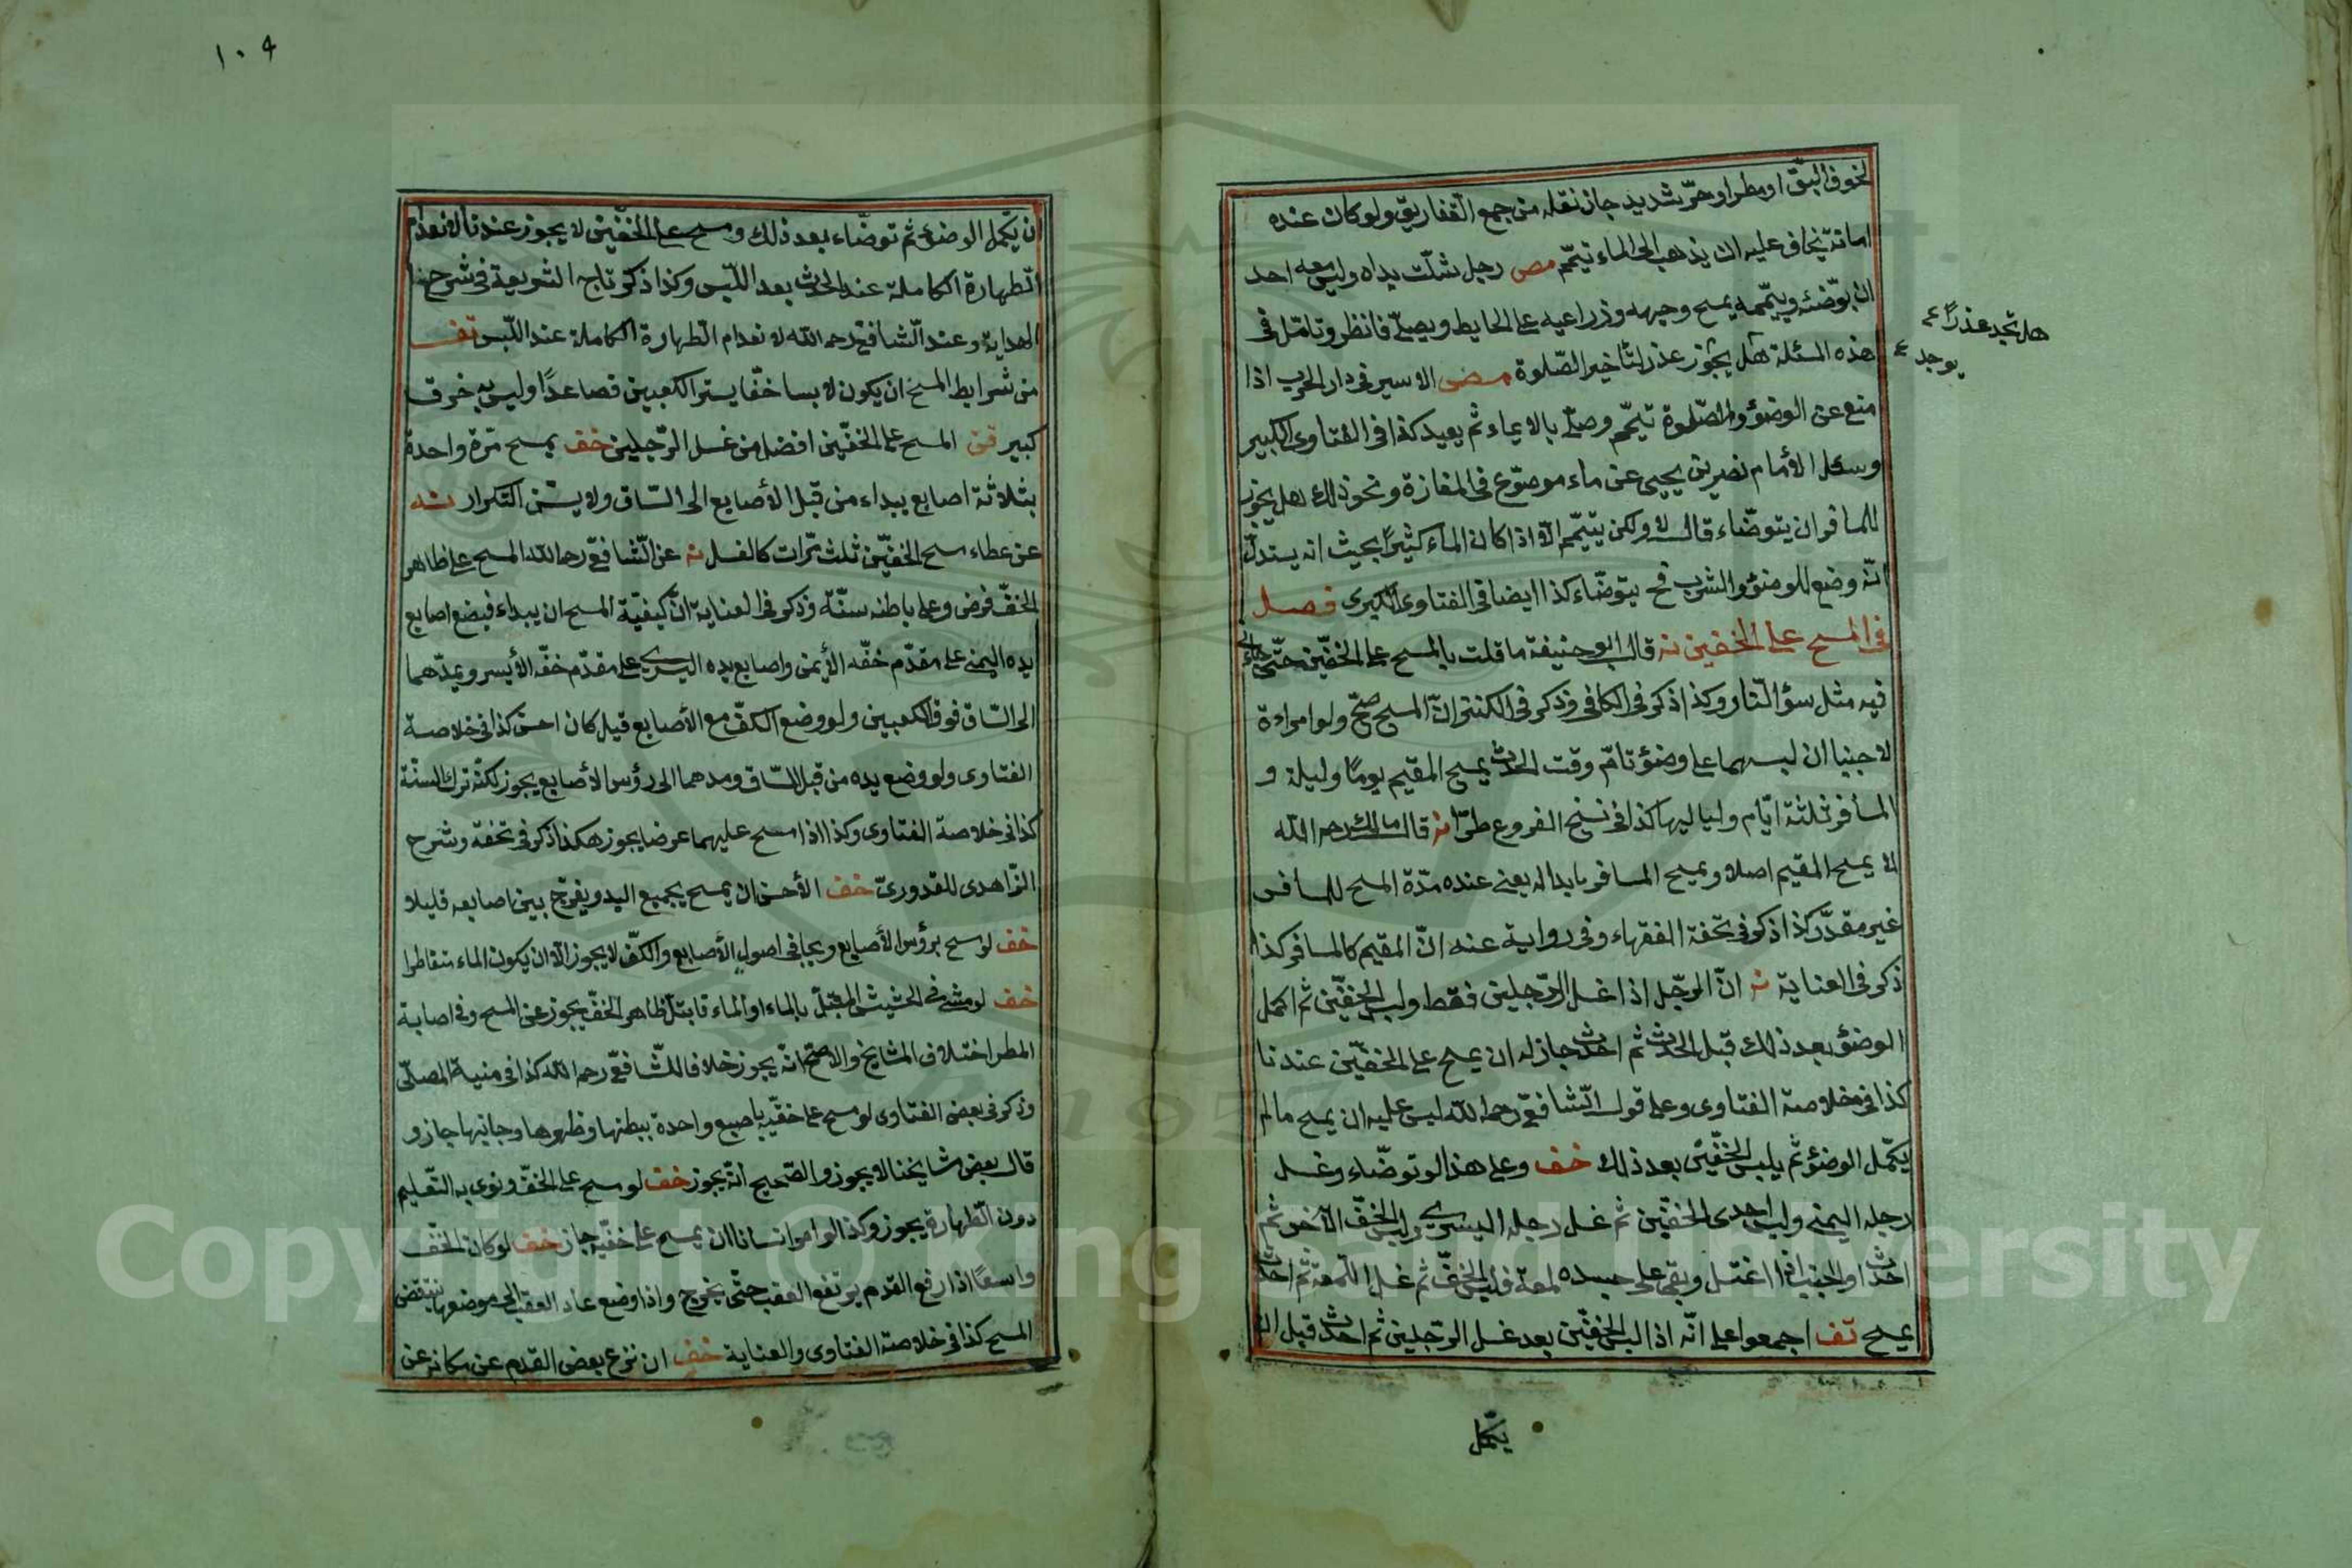 لخوف البقّ او مطر او حرّ شديد جاز نقله من جمع التفاريق ولو كان عنده
امانة يخاف عليه ان يذهب الى الماء تيمّم مص رجل شلّت يداه وليس معه احد
ان يوضّئه وييمّمه يمسح وجهه وذراعيه على الحايط ويصلّى فانظر وتامّل فى
هذه المسئلة هل يجوز عذر لتأخير الصّلوة مض الاسير فى دار الحرب اذا
منع عن الوضوء والصّلوة تيمّم وصلّى بالايماء ثم يعيد كذا فى الفتاوى الكبير
وسئل الأمام نصير بن يحيى عن ماء موضوع فى المفازة ونحو ذلك هل يجوز
للمسافر ان يتوضّاء قال لا ولكن يتيمّم الّا اذا كان الماء كثيرًا بحيث انه يستدلّ
انّه وضع للوضوء والشرب فح يتوضّاء كذا ايضا فى الفتاوى الكبرى فصل
فى المسح على الخفين نه قال ابو حنيفة ما قلت بالمسح على الخفّين حتّى جائنى
فيه مثل ضوء النّار وكذا ذكر فى الكافى وذكر فى الكنز انّ المسح صحّ ولو امراءة
لا جنبا ان لبسهما على وضوء تامّ وقت الحدث يمسح المقيم يومًا وليلة و
المسأفر ثلثة ايّام ولياليها كذا فى نسخ الفروع طرّا نه قال مالك رحمه الله
لا يمسح المقيم اصلا ويمسح المسافر ما بداله يعنى عنده مدّة المسح للمسافر
غير مقدّر كذا ذكر فى تحفة الفقهاء وفى رواية عنه انّ المقيم كالمسافر كذا
ذكر فى العناية نه انّ الرجل اذا غسل الرّجلين فقط ولبس الخفّين ثم اكمل
الوضؤ بعد ذلك قبل الحدث ثم احدث جاز له ان يمسح على الخفّين عندنا
كذا فى خلاصة الفتاوى وعلى قول الشّافعىّ رحمه الله ليس عليه ان يمسح مالم
يكمّل الوضؤ ثم يلبس الخفّين بعد ذلك خف وعلى هذا لو توضّاء وغسل
رجله اليمنى ولبس احدى الخفّين ثم غسل رجله اليسرى ولبس الخفّ الآخر ثم
احدث او الجنب اذا اغتسل وبقى على جسده لمعة فلبس الخفّ ثم غسل اللّمعة ثم احدث
يمسح تف اجمعوا على انّه اذا لبس الخفّين بعد غسل الرّجلين ثم احدث قبل ان
يكمّل
هل تجد عذرًا
يوجد
١٠٩
ان يكمّل الوضؤ ثم توضّاء بعد ذلك ومسح على الخفّين لا يجوز عندنا لانعدام
الطّهارة الكاملة عند الحدث بعد اللّبس وكذا ذكر تاج الشريعة فى شرح
الهداية وعند الشّافعى رحمه الله لانعدام الطّهارة الكاملة عند اللّبس تف
من شرايط المسح ان يكون لابسا خفّا يستر الكعبين فصاعدًا وليس به خرق
كبير قن المسح على الخفّين افضل من غسل الرّجلين خف يمسح مرّة واحدة
بثلاثة اصابع يبداء من قبل الأصابع الى السّاق ولا يسنّ التكرار نه
عن عطاء مسح الخفّين ثلث مرّات كالغسل نه عن الشّافعىّ رحمه الله المسح على ظاهر
الخفّ فرض وعلى باطنه سنّة وذكر فى العناية انّ كيفيّة المسح ان يبداء فيضع اصابع
يده اليمنى على مقدّم خفّه الأيمن واصابع يده اليسرى على مقدّم خفّه الأيسر ويمدّهما
الى السّاق فوق الكعبين ولو وضع الكفّ مع الأصابع قيل كان احسن كذا فى خلاصة
الفتاوى ولو وضع يده من قبل السّاق ومدهما الى رؤس الأصابع يجوز لكنّه ترك السنّة
كذا فى خلاصة الفتاوى وكذا اذا مسح عليهما عرضا يجوز هكذا ذكر فى تحفة وشرح
الزّاهدى للقدورىّ خف الأحسن ان يمسح بجميع اليد ويفرّج بين اصابعه قليلا
خف لو مسح برؤس الأصابع ويجافى اصول الأصابع والكفّ لا يجوز الّا ان يكون الماء متقاطرا
خف لو مشى فى الحشيش المبتلّ بالماء او الماء فابتلّ ظاهر الخفّ يجوز عن المسح وفى اصابة
المطر اختلاف المشايخ والاصحّ انّه يجوز خلافا للشّافعىّ رحمه الله كذا فى منية المصلّى
وذكر فى بعض الفتاوى لو مسح على خفّيه باصبع واحدة ببطنها وظهرها وجانبها جاز و
قال بعض مشايخنا لا يجوز والصّحيح انّه يجوز خف لو مسح على الخفّ ونوى به التّعليم
دون الطّهارة يجوز وكذا لو امر انسانا ان يمسح على خفّيه جاز خف لو كان الخفّ
واسعًا اذا رفع القدم يرتفع العقب حتّى يخرج واذا وضع عاد العقب الى موضعها ينتقض
المسح كذا فى خلاصة الفتاوى والعناية خف ان نزع بعض القدم عن مكانه عن
Copyright © King Saud University
1957